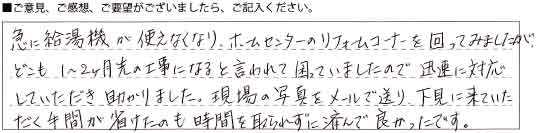 ■ご意見、ご感想、ご要望がございましたら、ご記入ください。
急に給湯機が使えなくなり、ホームセンターのリフォームコーナーを回ってみましたが、
どこも1～2ヶ月先の工事になると言われて困っていましたので迅速に対応
していただき助かりました。現場の写真をメールで送り、下見に来ていた
だく手間が省けたのも時間を取られずに済んで良かったです。